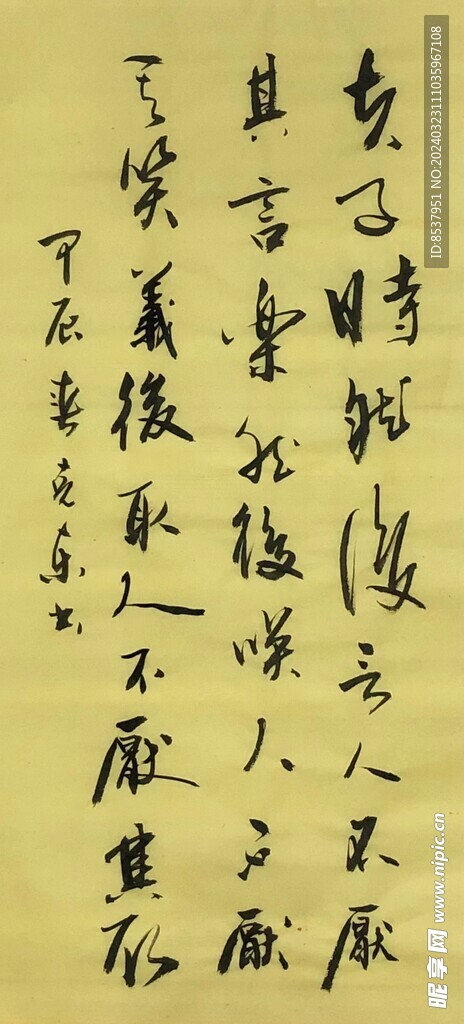 夫子時然後言人不厭
其言樂然後咲人不厭
其笑義後取人不厭其取
甲辰春克书
ID:8537951 NO:20240323111035967108
昵享网 www.nipic.cn